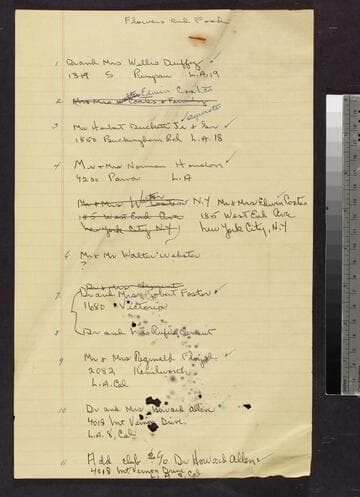 Flowers and Food
1 Dr and Mrs Wellis Duffy
1318 S Rimpau L.A. 19
2
3 Mr Herbert Duckett Jr & Son separate
1850 Buckingham Rd L.A. 18
4 Mr & Mrs Norman Houston
4230 Parva L.A
Mr & Mrs Walter N.Y Mr & Mrs Edwin Coates
185 West End Ave 185 West End Ave
New York City N.Y New York City, N.Y
6 Mr & Mr Walter Webster
?
Dr & Mrs
7 Dr and Mrs Robert Foster
1680 Victoria
8 Dr and Mrs Rufus Clement
9 Mr & Mrs Reginald Floyd
2082 Kenilworth
L.A. Cal
10 Dr and Mrs Howard Allen
4018 Mt Vernon Drive
L.A. 8, Cal
11 Add club c/o Dr Howard Allen
4018 Mt Vernon Drive
L.A. 8, Cal